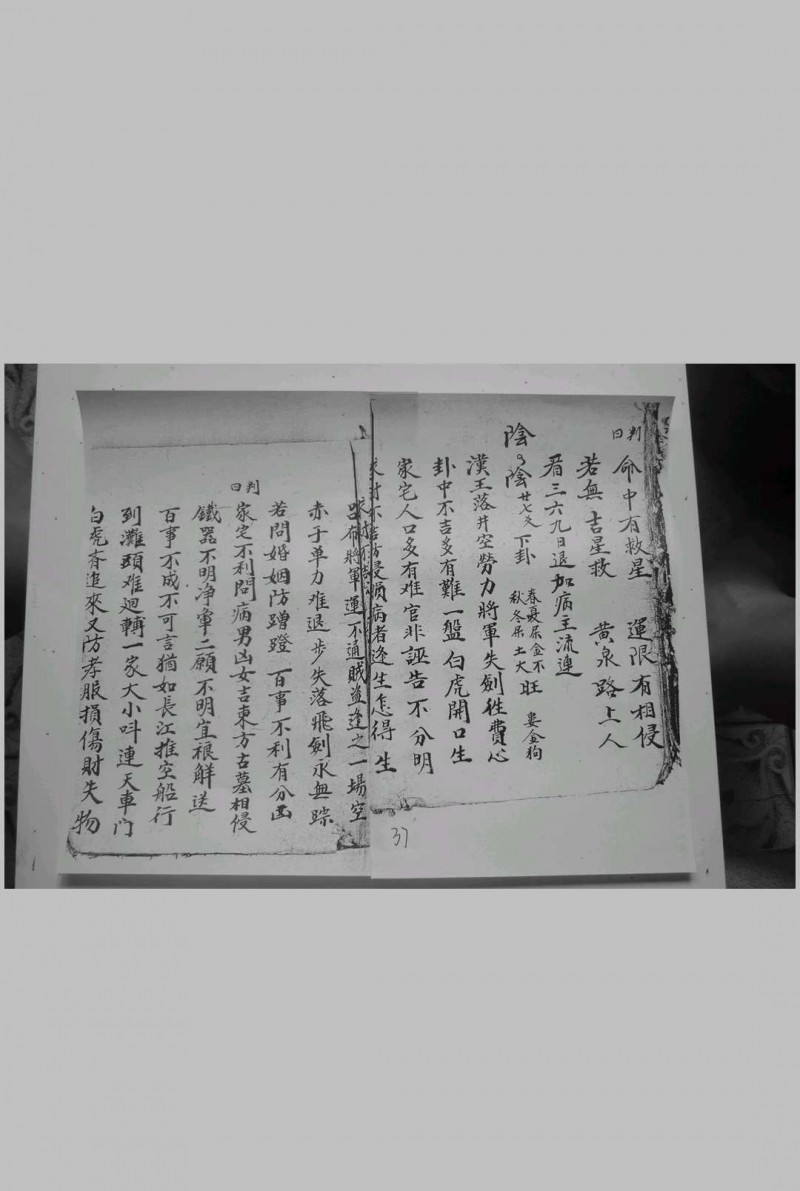 判曰 命中有救星 運限有相侵
若無吉星救 黄泉路上人
看三六九日退加病主流連
陰々陰 廿七爻 下卦 春夏屎金不旺 秋冬屎土大旺 婁金狗
漢王落井空勞力將軍失劍徃費心
卦中不吉多有難一盤白虎開口生
家宅人口多有难官非誣告不分明
求財不 侵損病者逢生怎得生
呂布將軍運不通賊盗逢之一場空
赤子单力难退步失落飛劍永無踪
若問婚姻防蹭蹬百事不利有分凶
判曰 家宅不利問病男凶女吉東方古墓相侵
鐵器不明净窜二願不明宜禳解送
百事不成不可言猶如長江推空船行
到灘頭难迴轉一家大小呌連天車门
白虎斉進來又防孝服損傷財失物
37